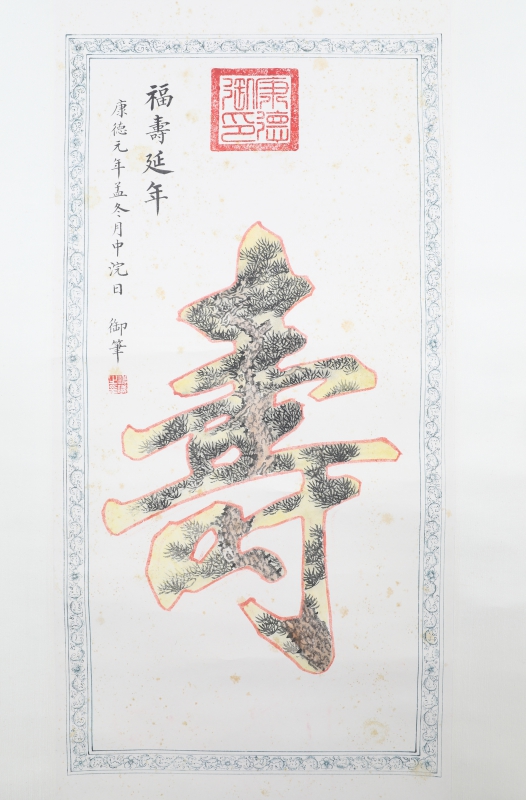 康德
御印
壽
福壽延年
康德元年孟冬月中浣日 御筆